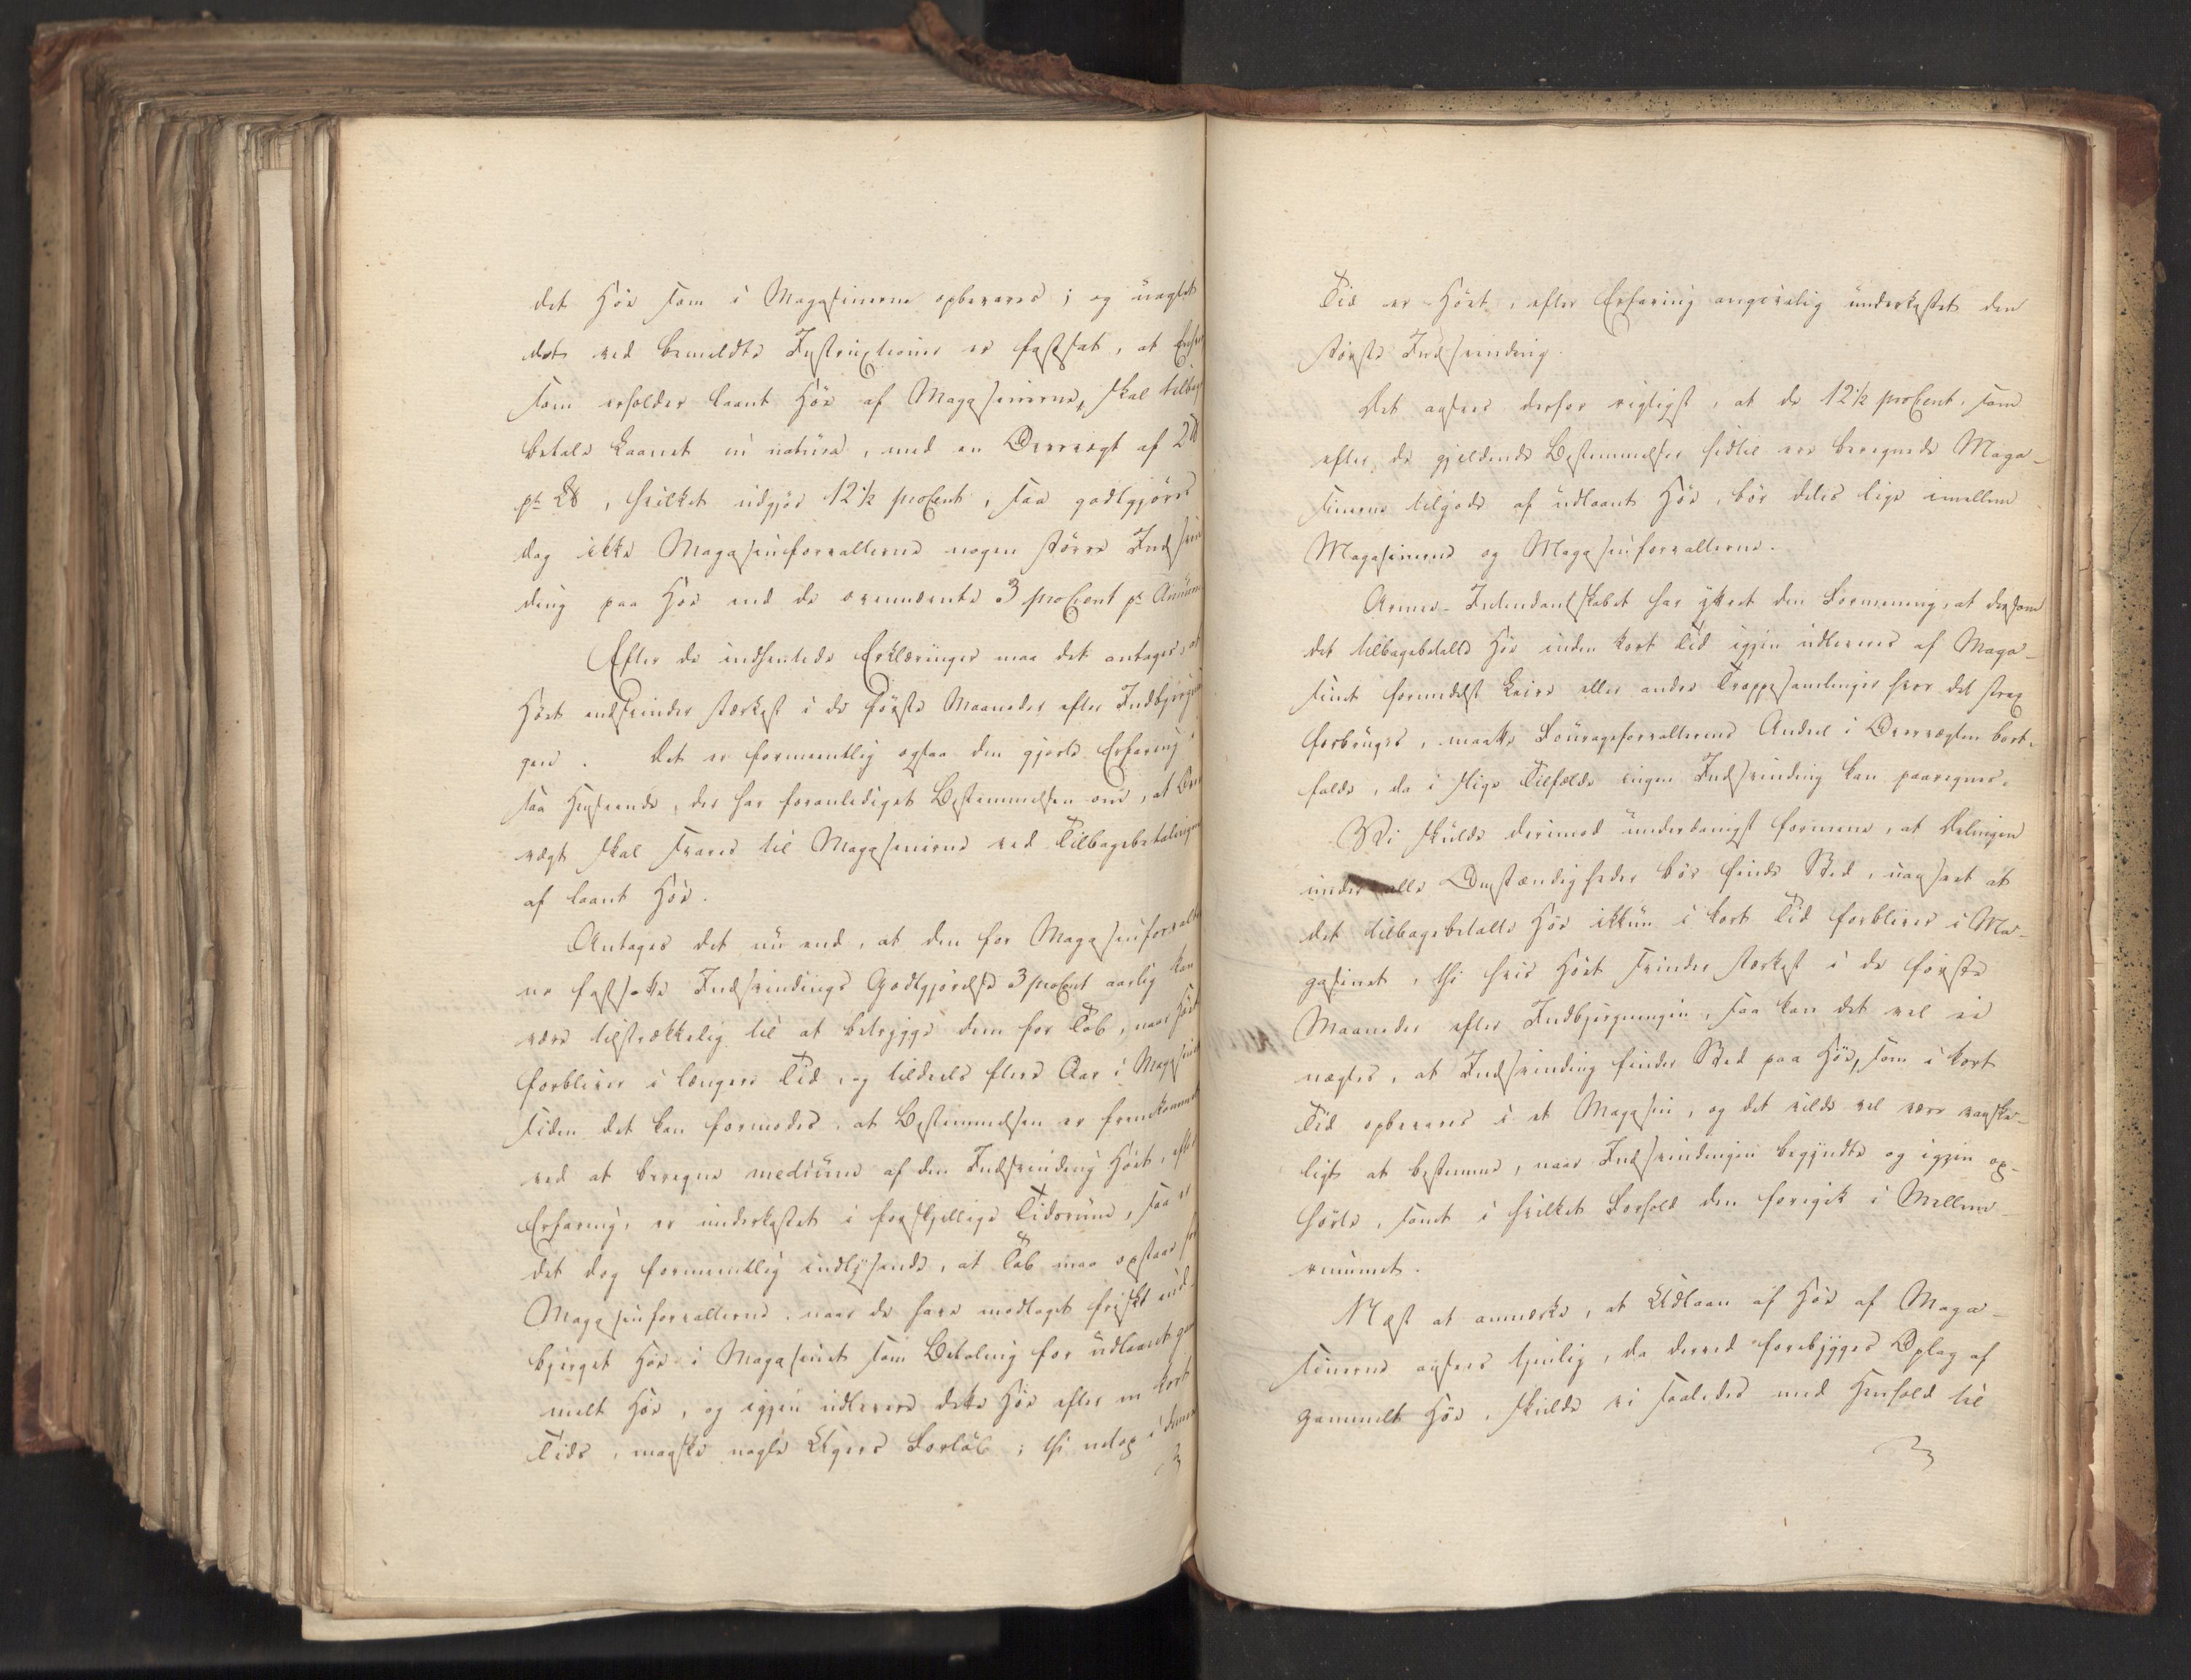 det Höe som i Magasinerne opbevares; og uagtet
det ved bemeldte Instruxtioner er fastsat, at Enhver
som erholder laant Höe af Magasinerne, skal tilbage
betale Laanet in natura, med en Overvægt af 2 ℔
pr L℔, hvilket udgjör 12½ proCent, saa godtgjöres
dog ikke Magasinforvalterne nogen större Indsvin
ding paa Höe end de ovennævnte 3 proCent pr Annum
Efter de indhentede Erklæringer maa det antages, at
Höet indsvinder stærkest i de förste Maaneder efter Indbjergnin
gen. Det er formeentlig ogsaa den gjorte Erfaring i
saa Henseende, der har foranlediget Bestemmelsen om, at Over
vægt skal svares til Magasinerne ved Tilbagebetalingen
af laant Höe.
Antages det nu end, at den for Magasinforvalter
ne fastsatte Indsvindings Godtgjörelse 3 proCent aarlig kan
være tilstrækkelig til at betrygge dem for Tab, naar Höet
forbliver i længere Tid, og tildeels flere Aar i Magasinet
siden det kan formodes, at Bestemmelsen er fremkommet
ved at beregne medium af den Indsvinding Höet, efter
Erfaring, er underkastet i forskjellige Tidsrum, saa er
det dog formeentlig indlysende, at Tab maa opstaae for
Magasinforvalterne, naar de have modtaget friskt ind-
bjerget Höe i Magasinet som Betaling for udlaant gam
melt Höe, og igjen udlevere dette Höe efter en kort
Tids, maaske nogle Ugers Forlöb; thi netop i denne
Tid er Höet, efter Erfaring angivelig underkastet den
störste Indsvinding.
Det agtes derfor rigtigst, at de 12½ proCent, som
efter de gjeldende Bestemmelser hidtil ere beregnede Maga-
sinerne tilgode af udlaant Höe, bör deles lige imellem
Magasinerne og Magasinforvalterne.
Armee-Intendantskabet har yttret den Formening, at dersom
det tilbagebetalte Höe inden kort Tid igjen udleveres af Maga-
sinet formedelst Leire eller andre Troppesamlinger hvor det strax
forbruges, maatte Fourageforvalterens Andeel i Overvægten bort-
falde, da i slige Tilfælde ingen Indsvinding kan paaregnes.
Vi skulde derimod underdanigst formene, at Delingen
under alle Omstændigheder bör finde Sted, uanseet at
det tilbagebetalte Höe ikkun i kort Tid forbliver i Ma-
gasinet, thi hvis Höet svinder stærkest i de förste
Maaneder efter Indbjergningen, saa kan det vel ei
nægtes, at Indsvinding finder Sted paa Höe, som i kort
Tid opbevares i et Magasin, og det vilde vel være vanske-
ligt at bestemme, naar Indsvindingen begyndte og igjen op-
hörte, samt i hvilket Forhold den foregik i Mellem-
rummet.
Næst at anmærke, at Udlaan af Höe af Maga-
sinerne agtes tjenlig, da derved forebygges Oplag af
gammelt Höe, skulde vi saaledes med Henhold til